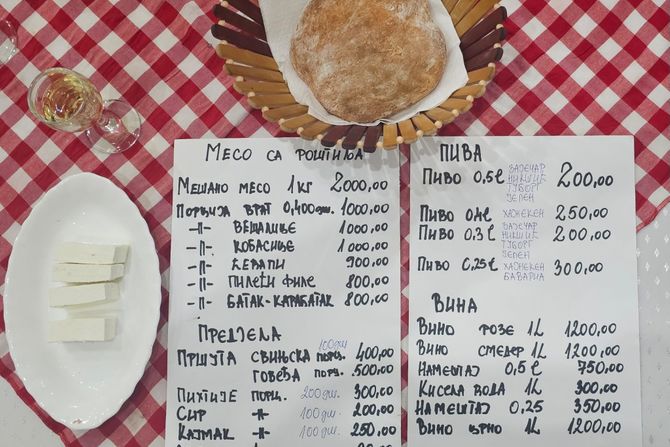 Месо са роштиља
Мешано месо 1кг 2000,00
Порција врат 0,400gm. 1000,00
-||- вешалице 1000,00
-||- кобасице 1000,00
-||- ћевапи 900,00
-||- пилећи филе 800,00
-||- батак-карабатак 800,00
Предјела
100gm
Пршута свињска порц. 400,00
говеђа порц. 500,00
Пихтије порц. 200gm. 300,00
Сир -||- 100gm. 200,00
Кајмак -||- 100gm. 250,00
Пива
Пиво 0.5ℓ зајечар никшић туборг јелен 200,00
Пиво 0.4ℓ хајнекен 250,00
Пиво 0.3ℓ зајечар никшић туборг јелен 200,00
Пиво 0,25ℓ хајнекен бавариа 300,00
Вина
Вино розе 1L 1200,00
Вино смедер 1L 1200,00
Намештај 0,5ℓ 750,00
Кисела вода 1L 300,00
Намештај 0,25 350,00
Вино црно 1L 1200,00